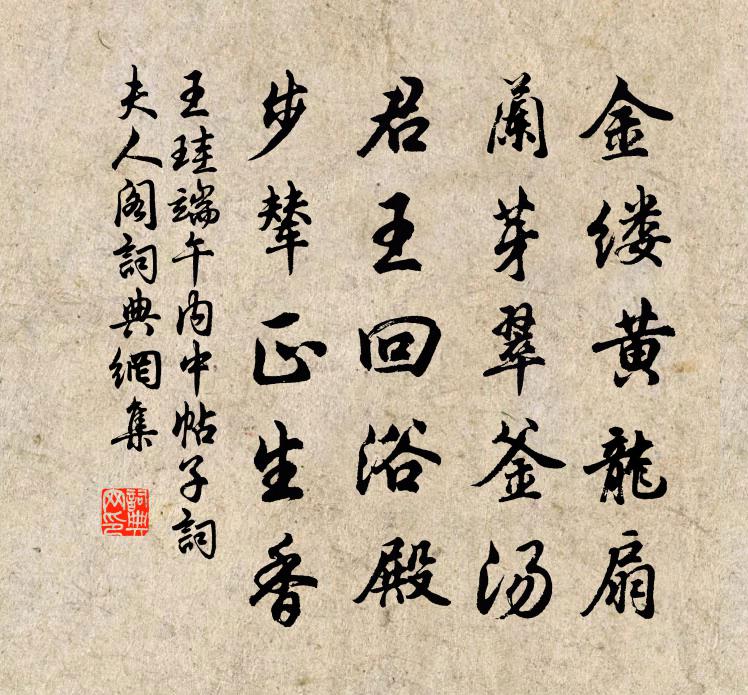 金缕黄龍扇
蘭芽翠釜汤
君王回浴殿
步輦正生香
王珪端午内中帖子詞
夫人阁詞典網集
詞典网印